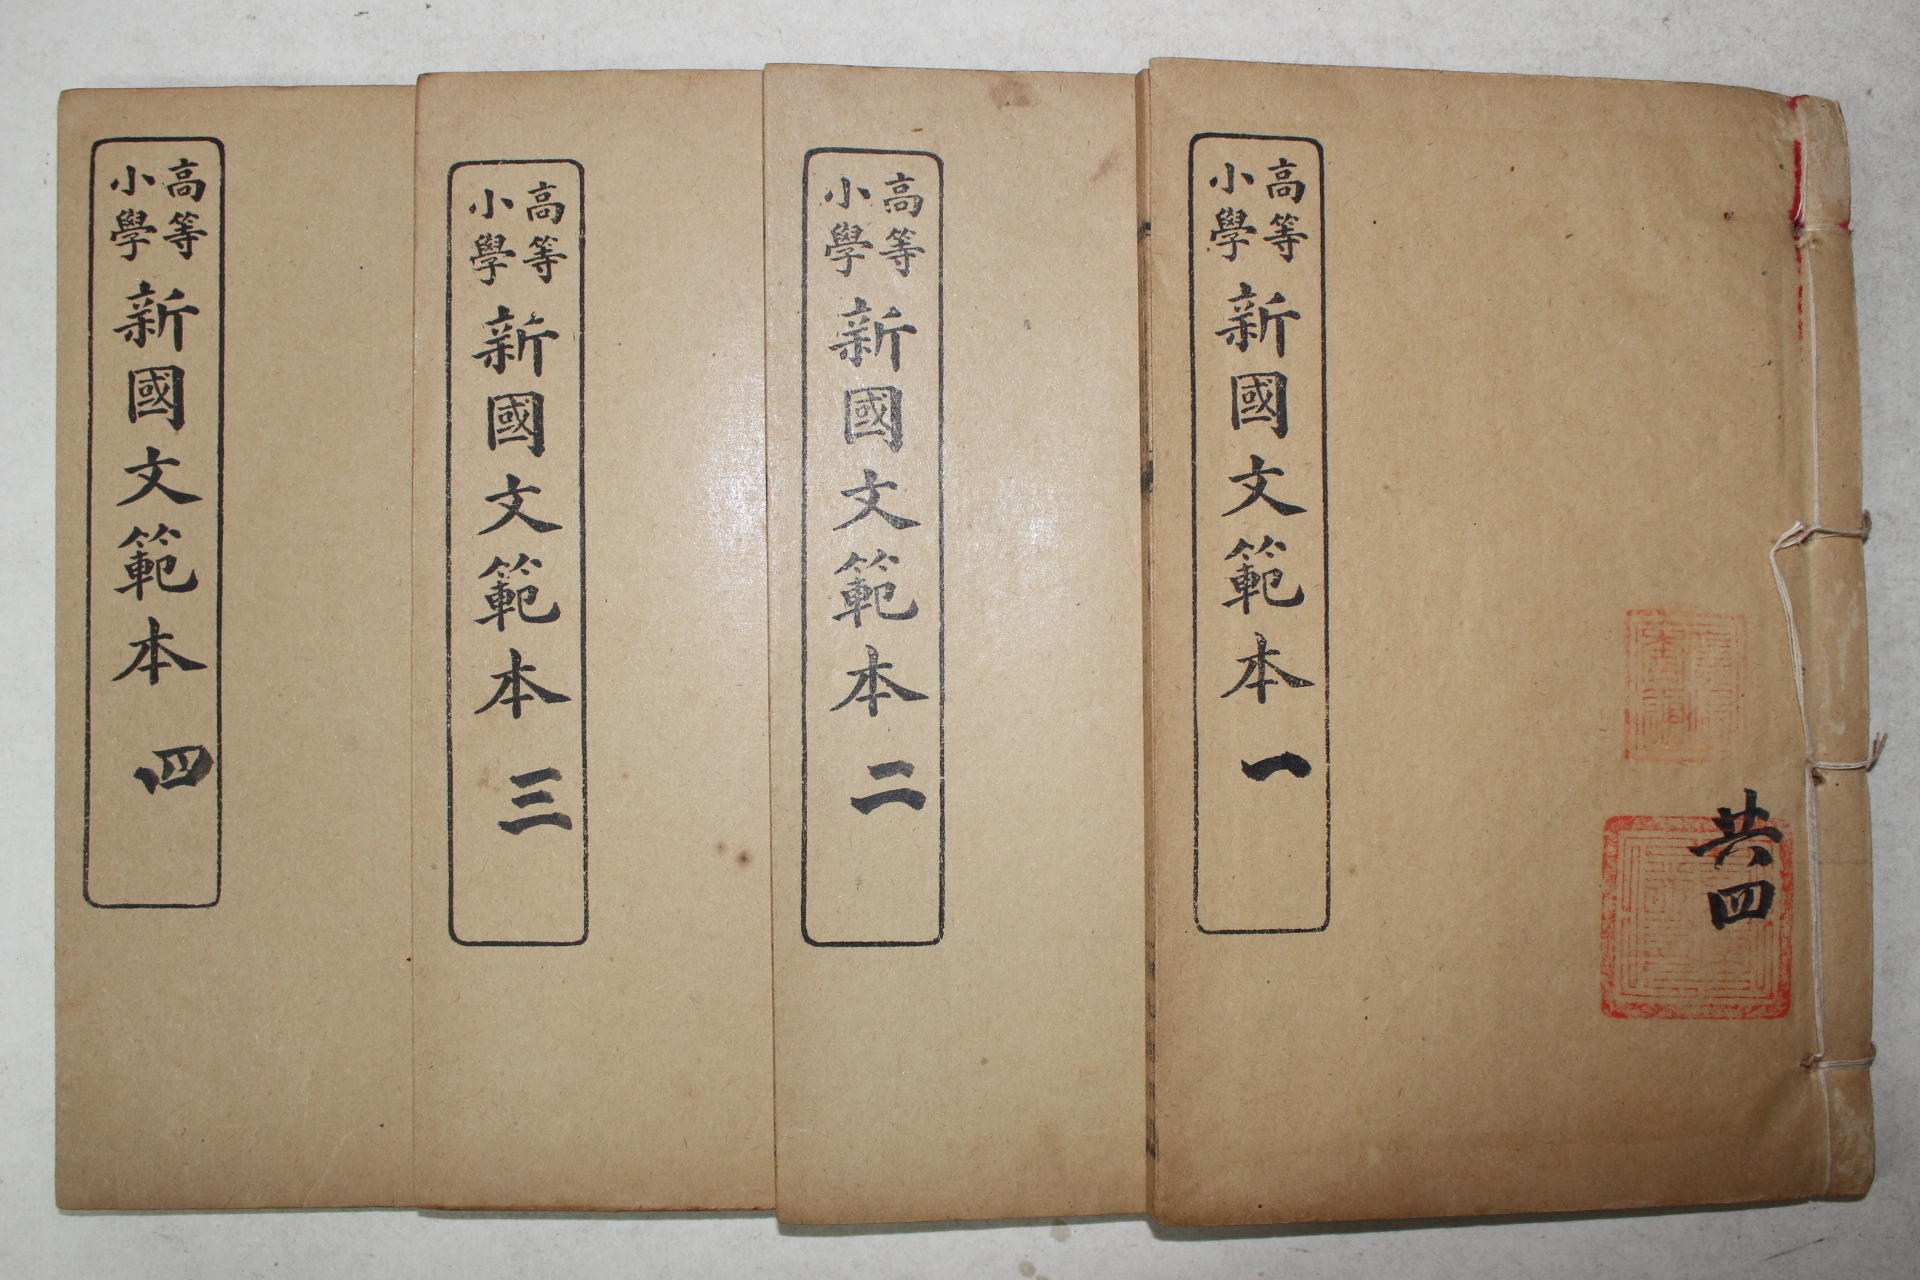 高等
小學
新國文範本 一
共四
高等
小學
新國文範本 二
高等
小學
新國文範本 三
高等
小學
新國文範本 四